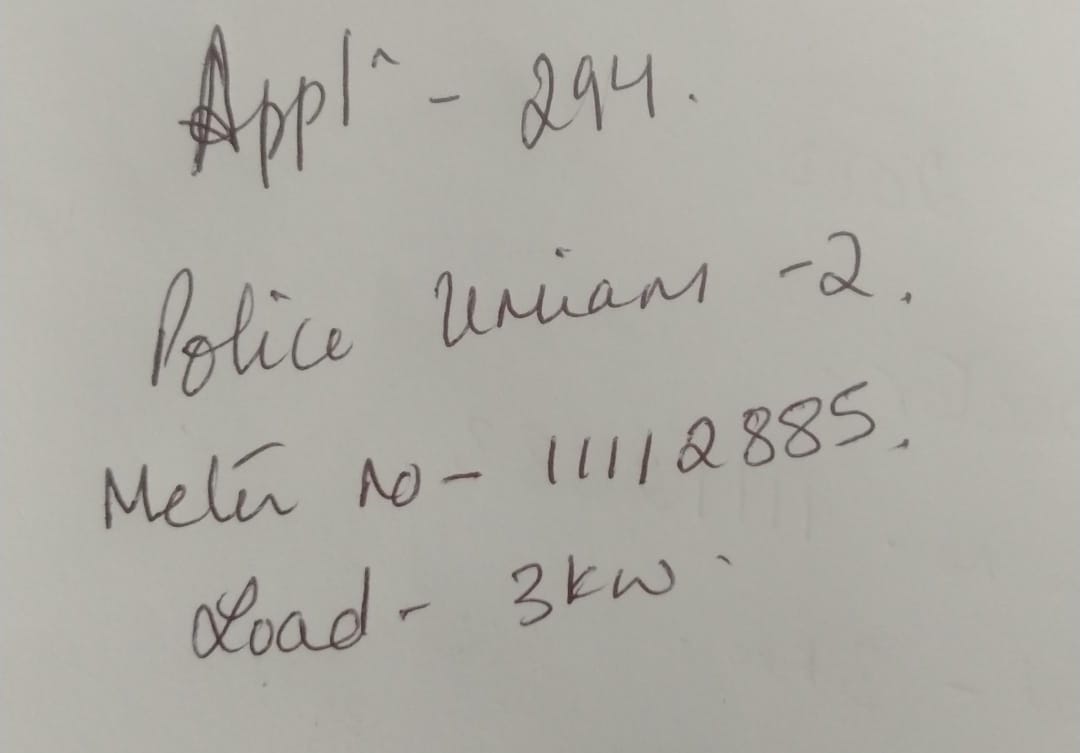 Appl^ - 294.
Police Unians - 2.
Meter no - 11112885.
Load - 3kw.